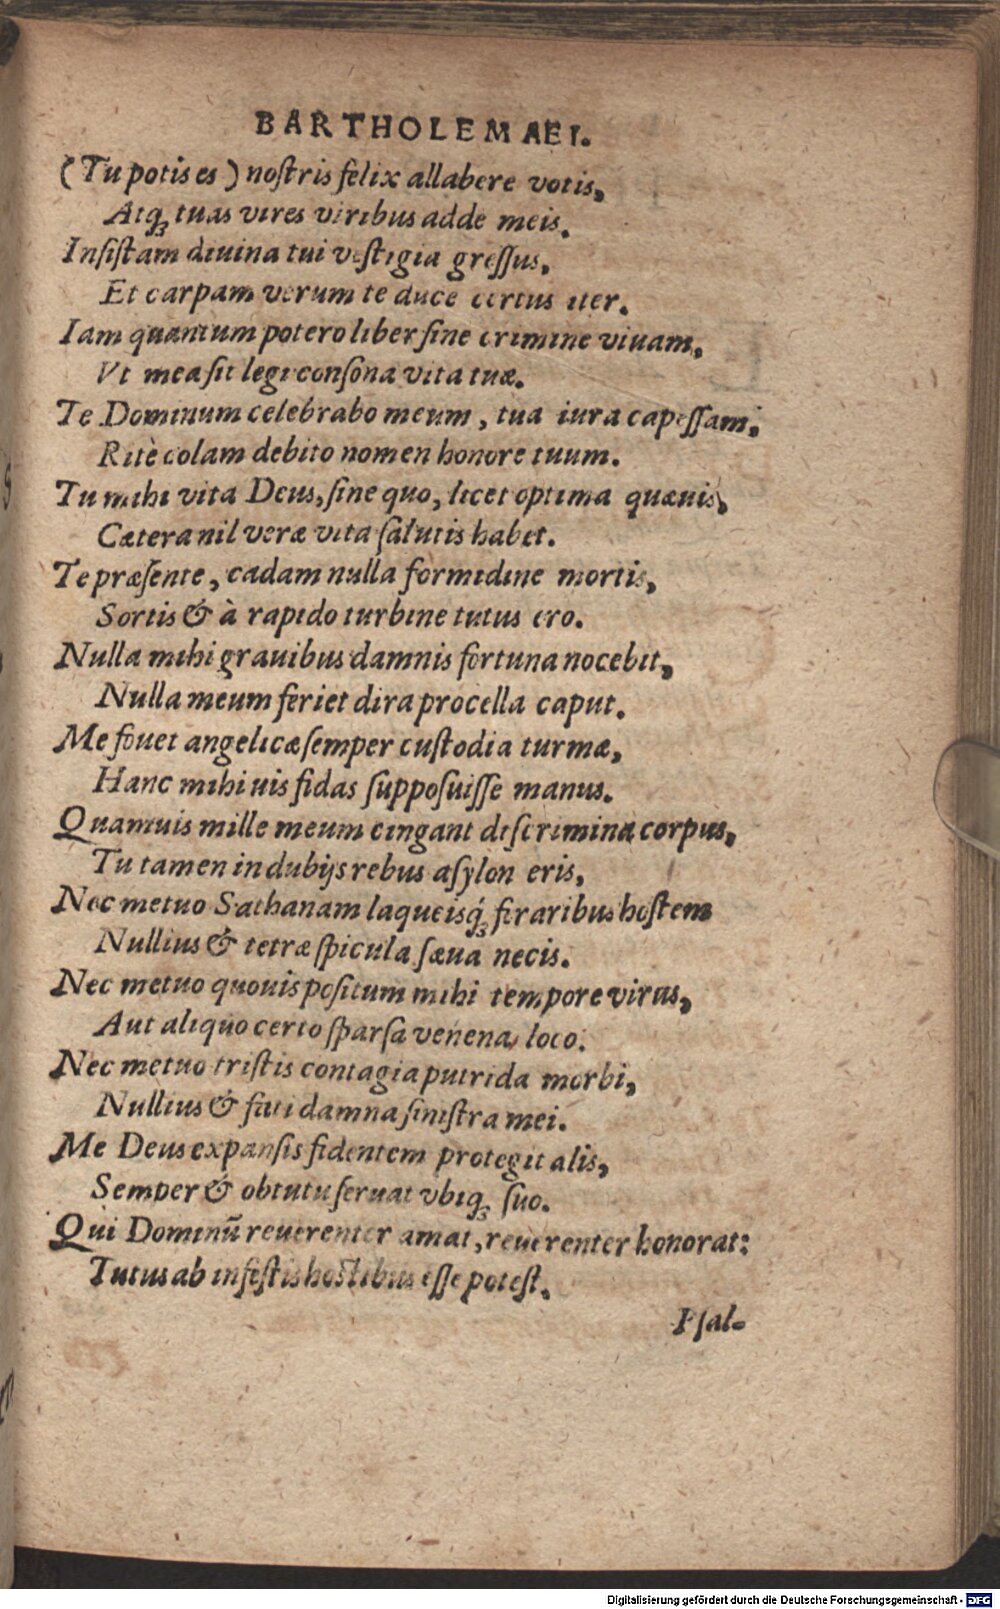 BARTHOLEMAEI.
(Tu potis es) noſtris felix allabere votis,
Atq́ꝫ tuas vires viribus adde meis.
Inſiſtam diuina tui veſtigia greſſus,
Et carpam verum te duce certus iter.
Iam quantum potero liber ſine crimine viuam,
Vt mea ſit legi conſona vita tuæ.
Te Dominum celebrabo meum, tua iura capeſſam,
Ritè colam debito nomen honore tuum.
Tu mihi vita Deus, ſine quo, licet optima quæuis,
Cætera nil veræ vita ſalutis habet.
Te præſente, cadam nulla formidine mortis,
Sortis & à rapido turbine tutus ero.
Nulla mihi grauibus damnis fortuna nocebit,
Nulla meum feriet dira procella caput.
Me fouet angelicæ ſemper cuſtodia turmæ,
Hanc mihi uis fidas ſuppoſuiſſe manus.
Quamuis mille meum cingant diſcrimina corpus,
Tu tamen in dubijs rebus aſylon eris,
Nec metuo Sathanam laqueisq́ꝫ feraribus hoſtem
Nullius & tetræ ſpicula ſæua necis.
Nec metuo quouis poſitum mihi tempore virus,
Aut aliquo certo ſparſa venena loco.
Nec metuo triſtis contagia putrida morbi,
Nullius & fati damna ſiniſtra mei.
Me Deus expanſis fidentem protegit alis,
Semper & obtutu ſeruat vbiqꝫ ſuo.
Qui Dominū reuerenter amat, reuerenter honorat:
Tutus ab infeſtis hoſtibus eſſe poteſt.
Pſal-
Digitalisierung gefördert durch die Deutsche Forschungsgemeinschaft - DFG